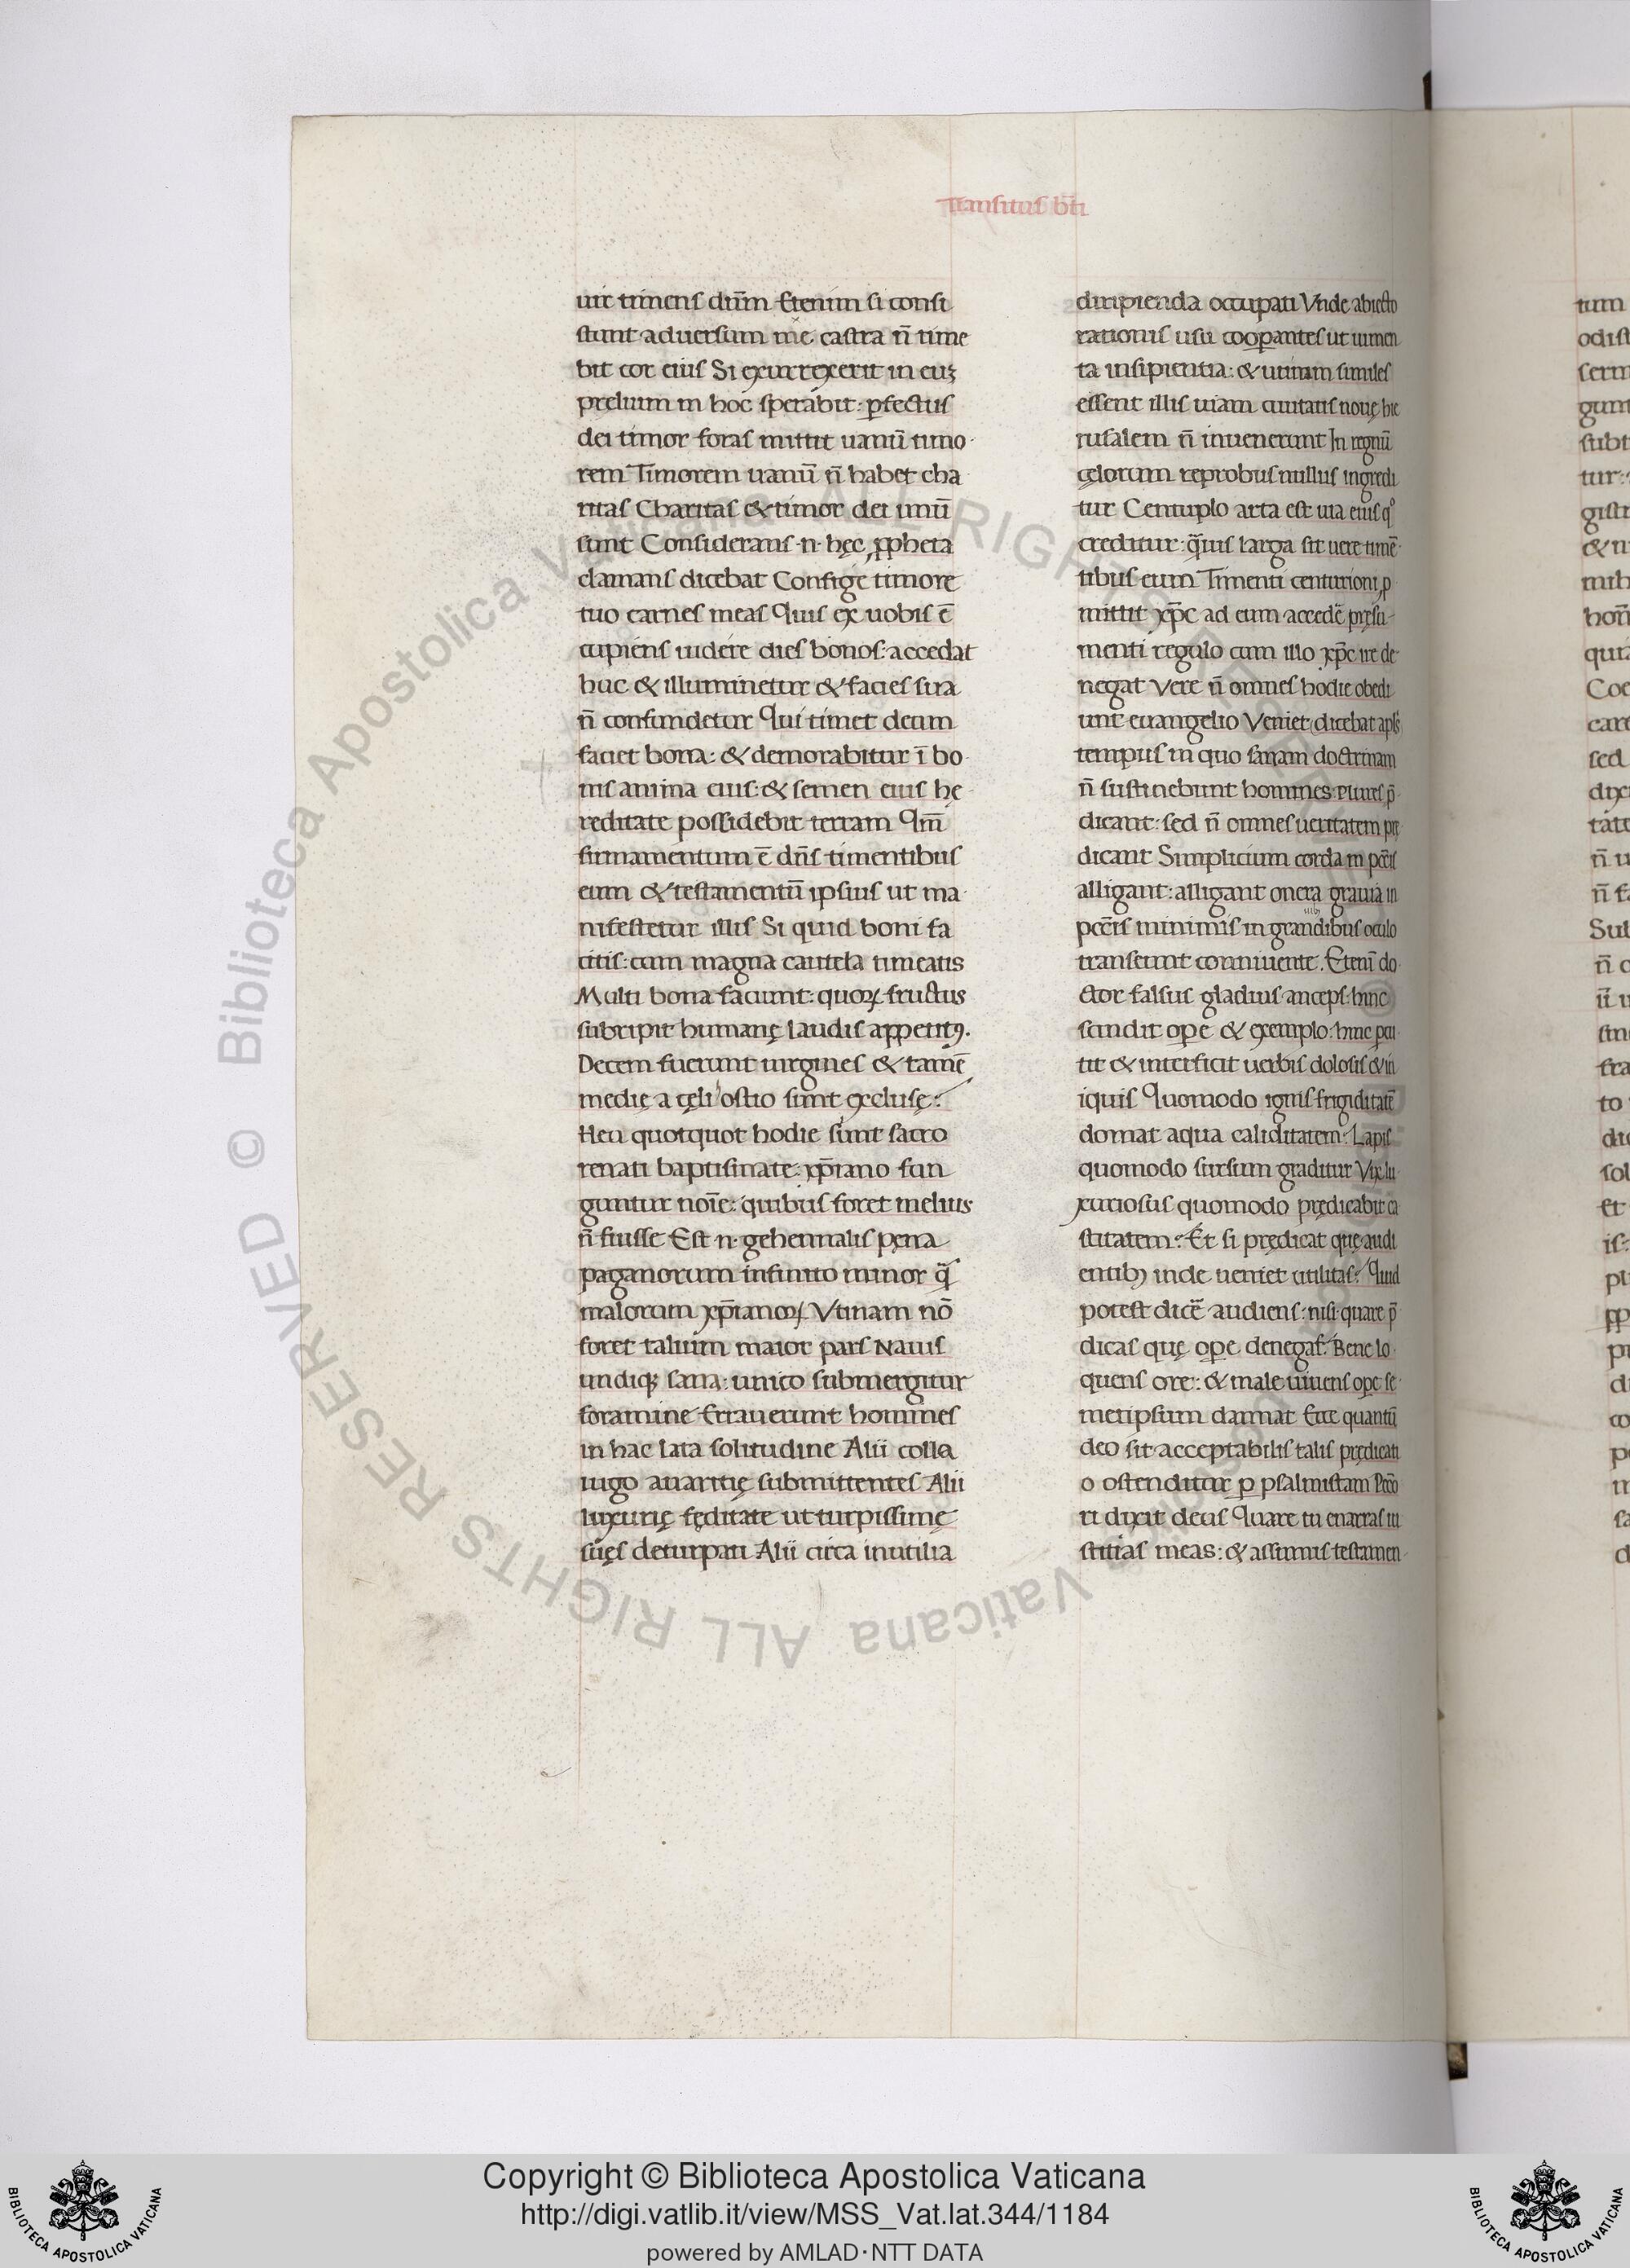 transitus bti
uir timens dūm Etenim si consi
stunt aduersum me castra n̄ time
bit cor eius Si exurrexerit in euꝫ
prelium in hoc sperabit: ꝑfectus
dei timor foras mittit uanū timo
rem Timorem uanū n̄ habet cha
ritas Charitas & timor dei unū
sunt Considerans .n. hęc ꝓpheta
clamans dicebat Confige timore
tuo carnes meas Quis ex uobis ē
cupiens uidere dies bonos: accedat
huc & illuminetur & facies sua
n̄ confundetur Qui timet deum
faciet bona: & demorabitur ī bo
nis anima eius: & semen eius hę
reditate possidebit terram Qm̄
firmamentum ē dn̄s timentibus
eum & testamentū ipsius ut ma
nifestetur illis Si quid boni fa
citis: cum magna cautela timeatis
Multi bona faciunt: quoꝝ fructus
subripit humanę laudis appetitꝰ.
Decem fuerunt uirgines & tamē
medię a cęli ostio sunt excluse:
Heu quotquot hodie sunt sacro
renati baptismate: xp̄iano fun
guntur noīe: quibus foret melius
n̄ fuisse Est .n. gehennalis pęna
paganorum infinito minor q̄
malorum xp̄ianoꝝ Vtinam nō
foret talium maior pars Nauis
undiqꝫ sana: unico submergitur
foramine Errauerunt homines
in hac lata solitudine Alii colla
iugo auaritię submittentes Alii
luxurię fęditate ut turpissimę
sues deturpati Alii circa inutilia
diripienda occupati Vnde abiecto
rationis usu cooperantes ut iumen
ta insipientia: & utinam similes
essent illis uiam ciuitatis nouę hie
rusalem n̄ inuenerunt In regnū
cęlorum reprobus nullus ingredi
tur Centuplo arta est uia eius qͦ
creditur: q̄uis larga sit uere timē
tibus eum Timenti centurioni ꝓ
mittit xp̄c ad eum accedē pręsu
menti regulo cum illo xp̄c ire de
negat Vere n̄ omnes hodie obedi
unt euangelio Veniet dicebat apl̄s
tempus in quo sanam doctrinam
n̄ sustinebunt homines: plures p̄
dicant: sed n̄ omnes ueritatem prę
dicant Simplicium corda in pcc̄is
alligant: alligant onera grauia in
pcc̄is minimis in grandibus oculo
transeunt conniuente. Etenī do
ctor falsus gladius anceps: hinc
scindit ope & exemplo: hinc peri
tit & interficit uerbis dolosis & in
iquis Quomodo ignis frigiditatē
domat aqua caliditatem: Lapis
quomodo sursum graditur Vix lu
xuriosus quomodo prędicabit ca
stitatem: Et si prędicat quę audi
entibꝫ inde ueniet utilitas: Quid
potest dicē audiens: nisi quare p̄
dicas quę ope denegas: Bene lo
quens ore: & male uiuens ope se
metipsum damnat Ecce quantū
deo sit acceptabilis talis prędicati
o ostenditur ꝑ psalmistam Pcc̄o
ri dixit deus Quare tu enarras iu
stitias meas: & assumis testamen
tum
Copyright © Biblioteca Apostolica Vaticana
http://digi.vatlib.it/view/MSS_Vat.lat.344/1184
powered by AMLAD·NTT DATA